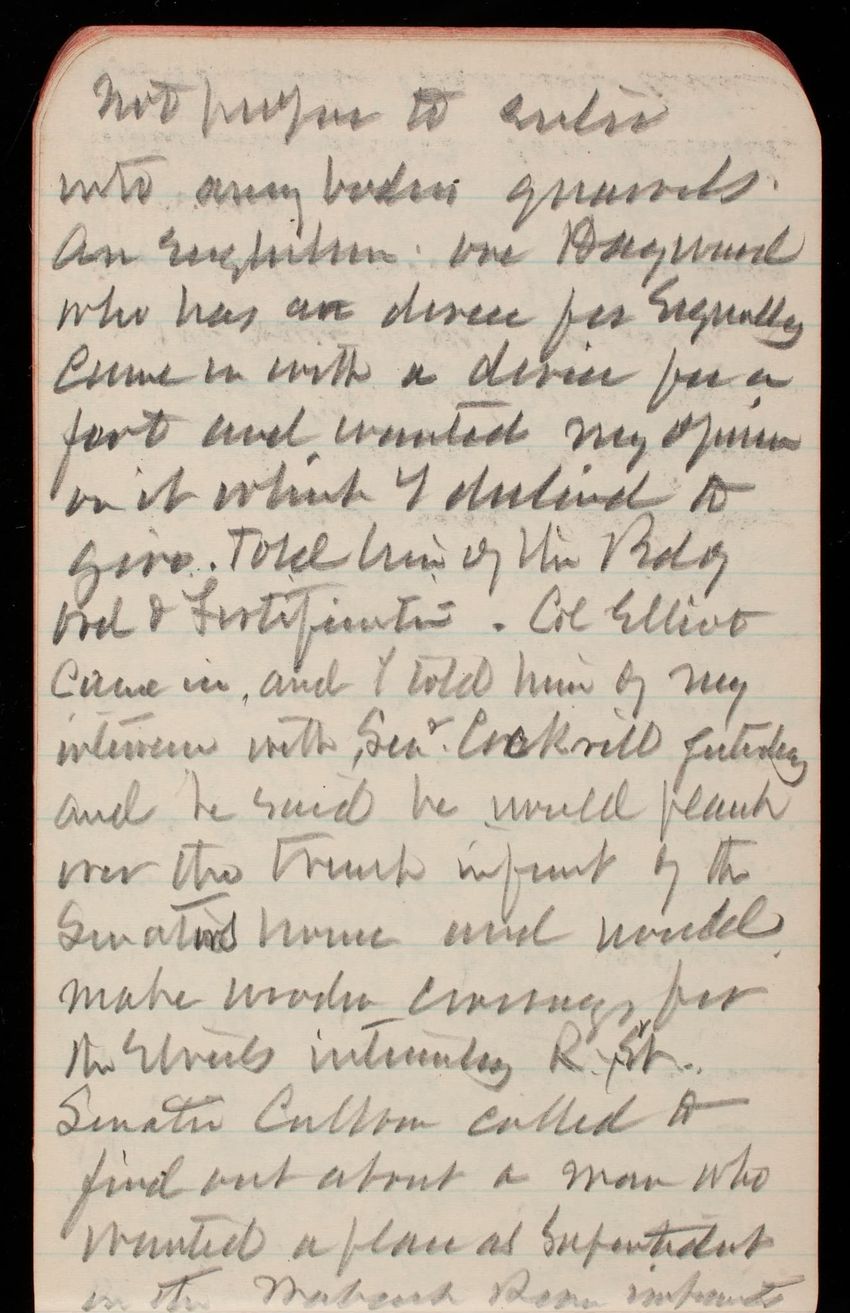 not proper to enter
into any bodies quarrels.
An Englishman. one Hayward
who has a device for Signalling
Came in with a device for a
fort and wanted my opinion
on it which I declined to
give. Told him of the Bd of
Ord & Fortification. Col Elliot
Came in, and I told him of my
interview with Senr. Cockrell yesterday
and he said he would plank
over the Trench in front of the
Senators house and would
make wooden crossings for
the Streets intersecting R. St.
Senator Cullom called to
find out about a man who
wanted a place as Superintendent
on the Wabash River